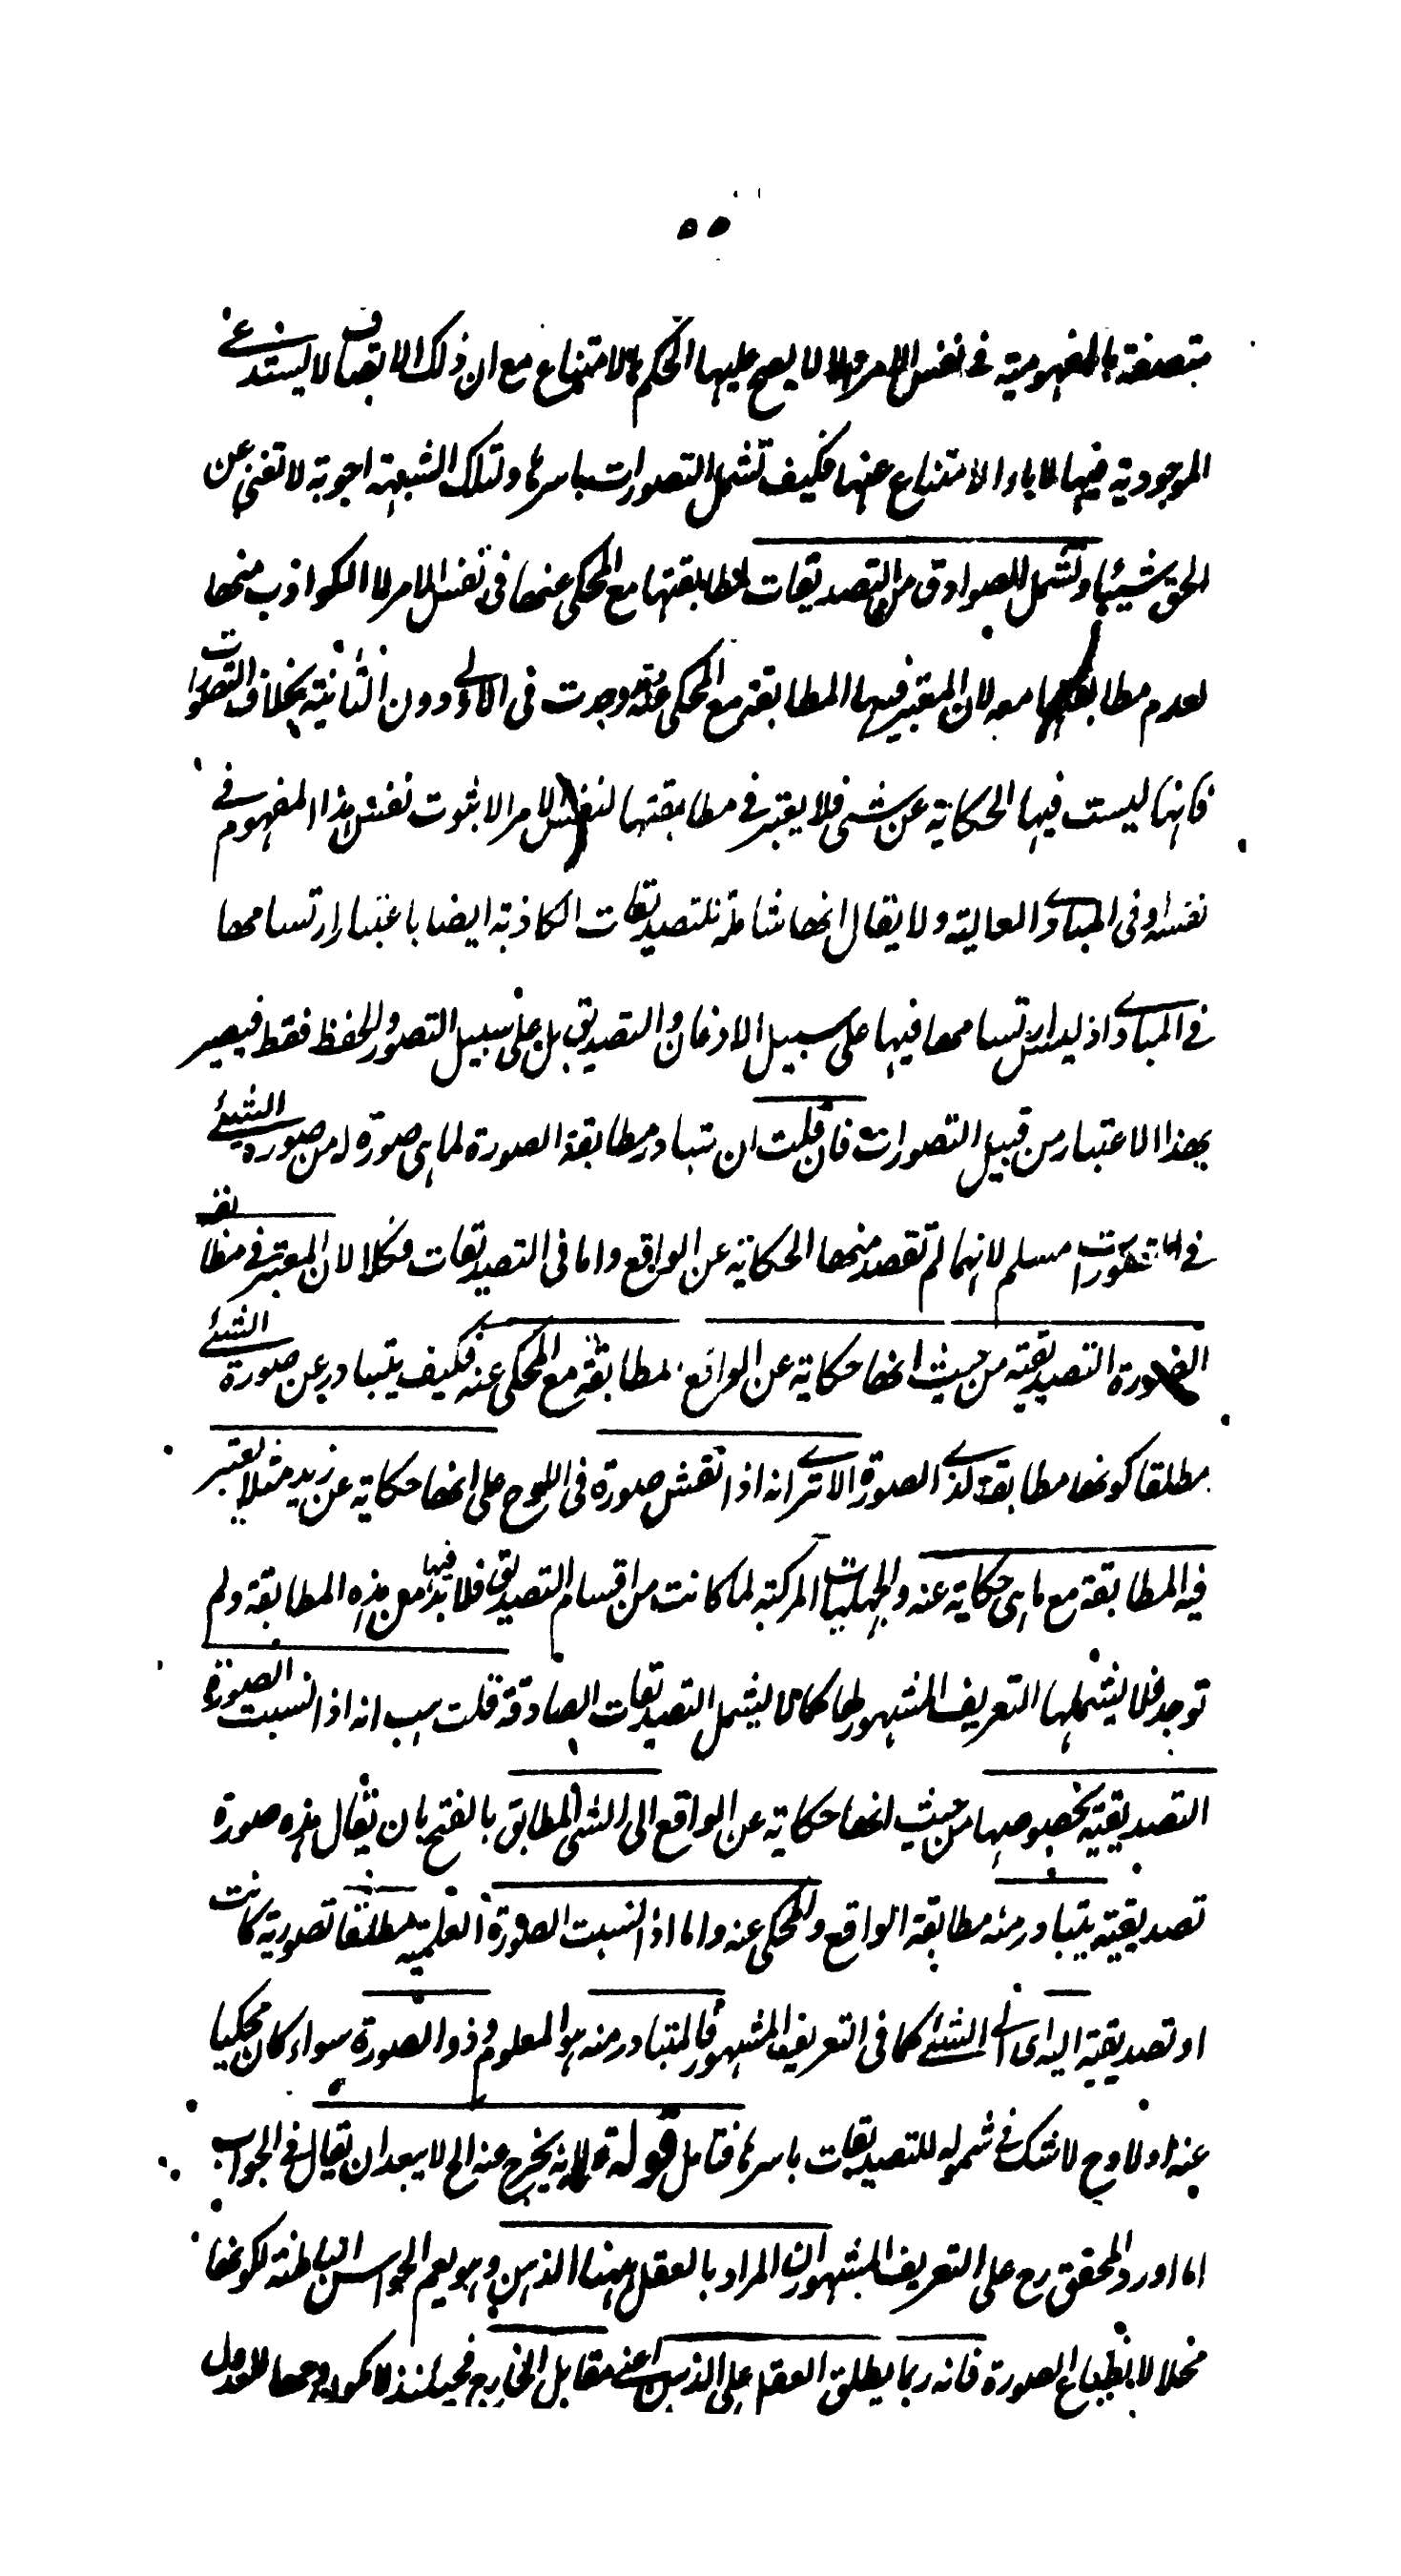 ٥٥
متصفة بالمفهومية في نفس الامر والا لا يصح عليها الحكم بالامتناع مع ان ذلك الاتصاف لا يستدعي
الموجودية فيها لاباء الامتناع عنها فكيف تشمل التصورات باسرها ولتلك الشبهة اجوبة لا تغني عن
الحق شيئا وتشمل للصوادق من التصديقات لمطابقتها مع المحكي عنها في نفس الامر لا الكواذب منها
لعدم مطابقتها معه لان المعتبر فيها المطابقة مع المحكي عنه وجدت في الاولى دون الثانية بخلاف التصورات
فانها ليست فيها الحكاية عن شئ فلا يعتبر في مطابقتها لنفس الامر الا ثبوت نفس هذا المفهوم في
نفسه او في المبادي العالية ولا يقال انها شاملة للتصديقات الكاذبة ايضا باعتبار ارتسامها
في المبادي اذ ليس ارتسامها فيها على سبيل الاذعان والتصديق بل على سبيل التصور والحفظ فقط فيصير
بهذا الاعتبار من قبيل التصورات فان قلت ان تبادر مطابقة الصورة لما هي صورة له من صورة الشيء
في التصورات مسلم لانها لم تقصد منها الحكاية عن الواقع واما في التصديقات فكلا لان المعتبر في مطابقة
الصورة التصديقية من حيث انها حكاية عن الواقع لمطابقة مع المحكي عنه فكيف يتبادر عن صورة الشيء
مطلقا كونها مطابقة لذي الصورة الا ترى انه اذا انقش صورة في اللوح على انها حكاية عن زيد مثلا يعتبر
فيه المطابقة مع ما هي حكاية عنه والجهليات المركبة لما كانت من اقسام التصديق فلا بد فيها من هذه المطابقة ولم
توجد فلا يشملها التعريف المشهور لها كما لا يشمل التصديقات الصادقة قلت هب انه اذا نسبت الصورة
التصديقية بخصوصها من حيث انها حكاية عن الواقع الى الشئ المطابق بالفتح بان يقال هذه صورة
تصديقية يتبادر منه مطابقة الواقع والمحكي عنه واما اذا نسبت الصورة العلمية مطلقا تصورية كانت
او تصديقية اليه اى الى الشئ كما في التعريف المشهور فالمتبادر منه هو المعلوم وذو الصورة سواء كان محكيا
عنه او لا وح لا شك في شموله للتصديقات باسرها فتامل قوله لانه يخرج عنه الخ لا يبعد ان يقال في الجواب
اما اورد المحقق رح على التعريف المشهور ان المراد بالعقل ههنا الذهن وهو يعم الحواس الباطنة لكونها
محلا لانطباع الصورة فانه ربما يطلق العقل على الذهن اعني مقابل الخارج فحينئذ لا